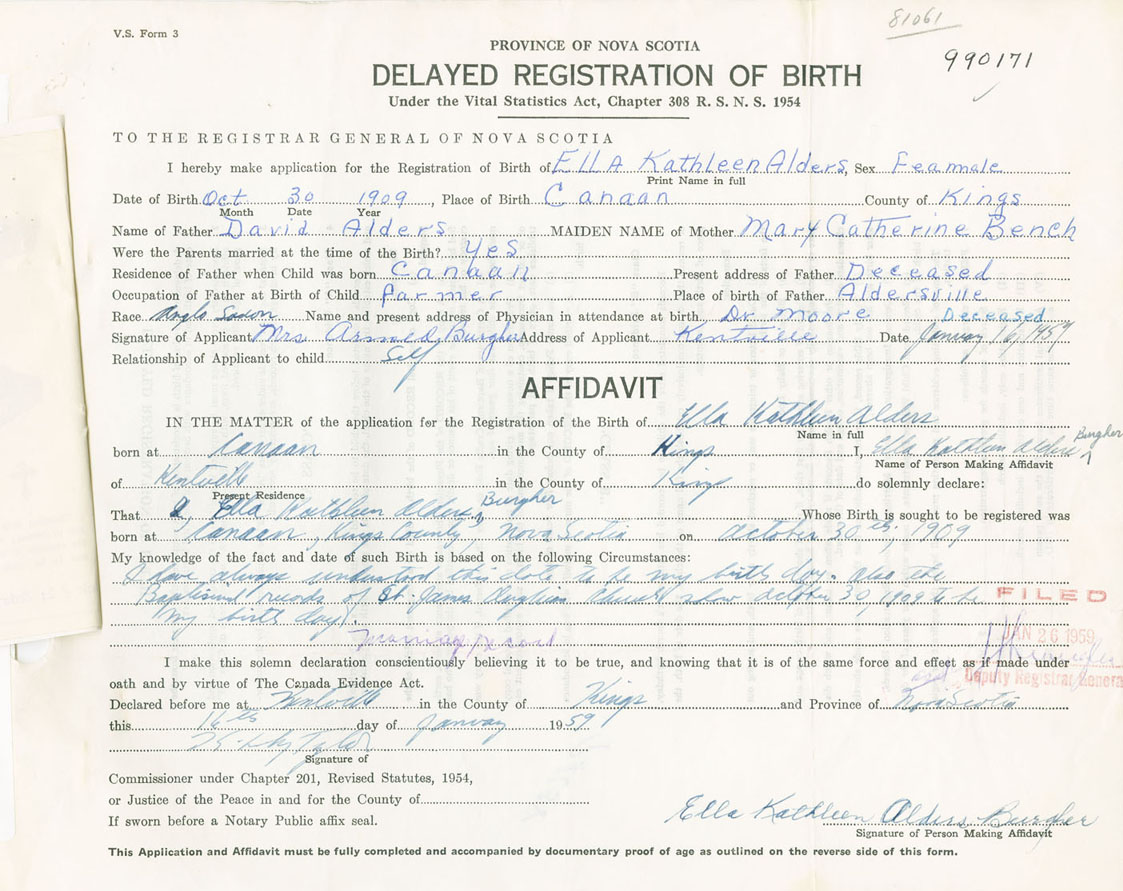 81061
V.S. Form 3
990171
PROVINCE OF NOVA SCOTIA
DELAYED REGISTRATION OF BIRTH
Under the Vital Statistics Act, Chapter 308 R. S. N. S. 1954
TO THE REGISTRAR GENERAL OF NOVA SCOTIA
I hereby make application for the Registration of Birth of Ella Kathleen Alders, Sex Feamale
Print Name in full
Date of Birth Oct 30 1909, Place of Birth Canaan County of Kings
Month Date Year
Name of Father David Alders MAIDEN NAME of Mother Mary Catherine Bench
Were the Parents married at the time of the Birth? Yes
Residence of Father when Child was born Canaan Present address of Father Deceased
Occupation of Father at Birth of Child farmer Place of birth of Father Aldersville
Race Anglo Saxon Name and present address of Physician in attendance at birth Dr Moore Deceased
Signature of Applicant Mrs Armed Burgher Address of Applicant Kentville Date January 16, 1959
Relationship of Applicant to child Self
AFFIDAVIT
IN THE MATTER of the application for the Registration of the Birth of Ella Kathleen Alders
Name in full
born at Canaan in the County of Kings I, Ella Kathleen Alders Burgher
Name of Person Making Affidavit
of Kentville in the County of Kings do solemnly declare:
Present Residence
That I, Ella Kathleen Alders Burgher Whose Birth is sought to be registered was
born at Canaan, Kings County, Nova Scotia on October 30th, 1909
My knowledge of the fact and date of such Birth is based on the following Circumstances:
I have always understood this date to be my birth day. also the
Baptismal records of St. James Anglican Church show October 30, 1909 to be
my birth day.
FILED
Marriage record
JAN 26 1959
I make this solemn declaration conscientiously believing it to be true, and knowing that it is of the same force and effect as if made under
oath and by virtue of The Canada Evidence Act.
Deputy Registrar General
Declared before me at Kentville in the County of Kings and Province of Nova Scotia
this 16th day of January 1959
Signature of
Commissioner under Chapter 201, Revised Statutes, 1954,
or Justice of the Peace in and for the County of
If sworn before a Notary Public affix seal.
Ella Kathleen Alders Burgher
Signature of Person Making Affidavit
This Application and Affidavit must be fully completed and accompanied by documentary proof of age as outlined on the reverse side of this form.